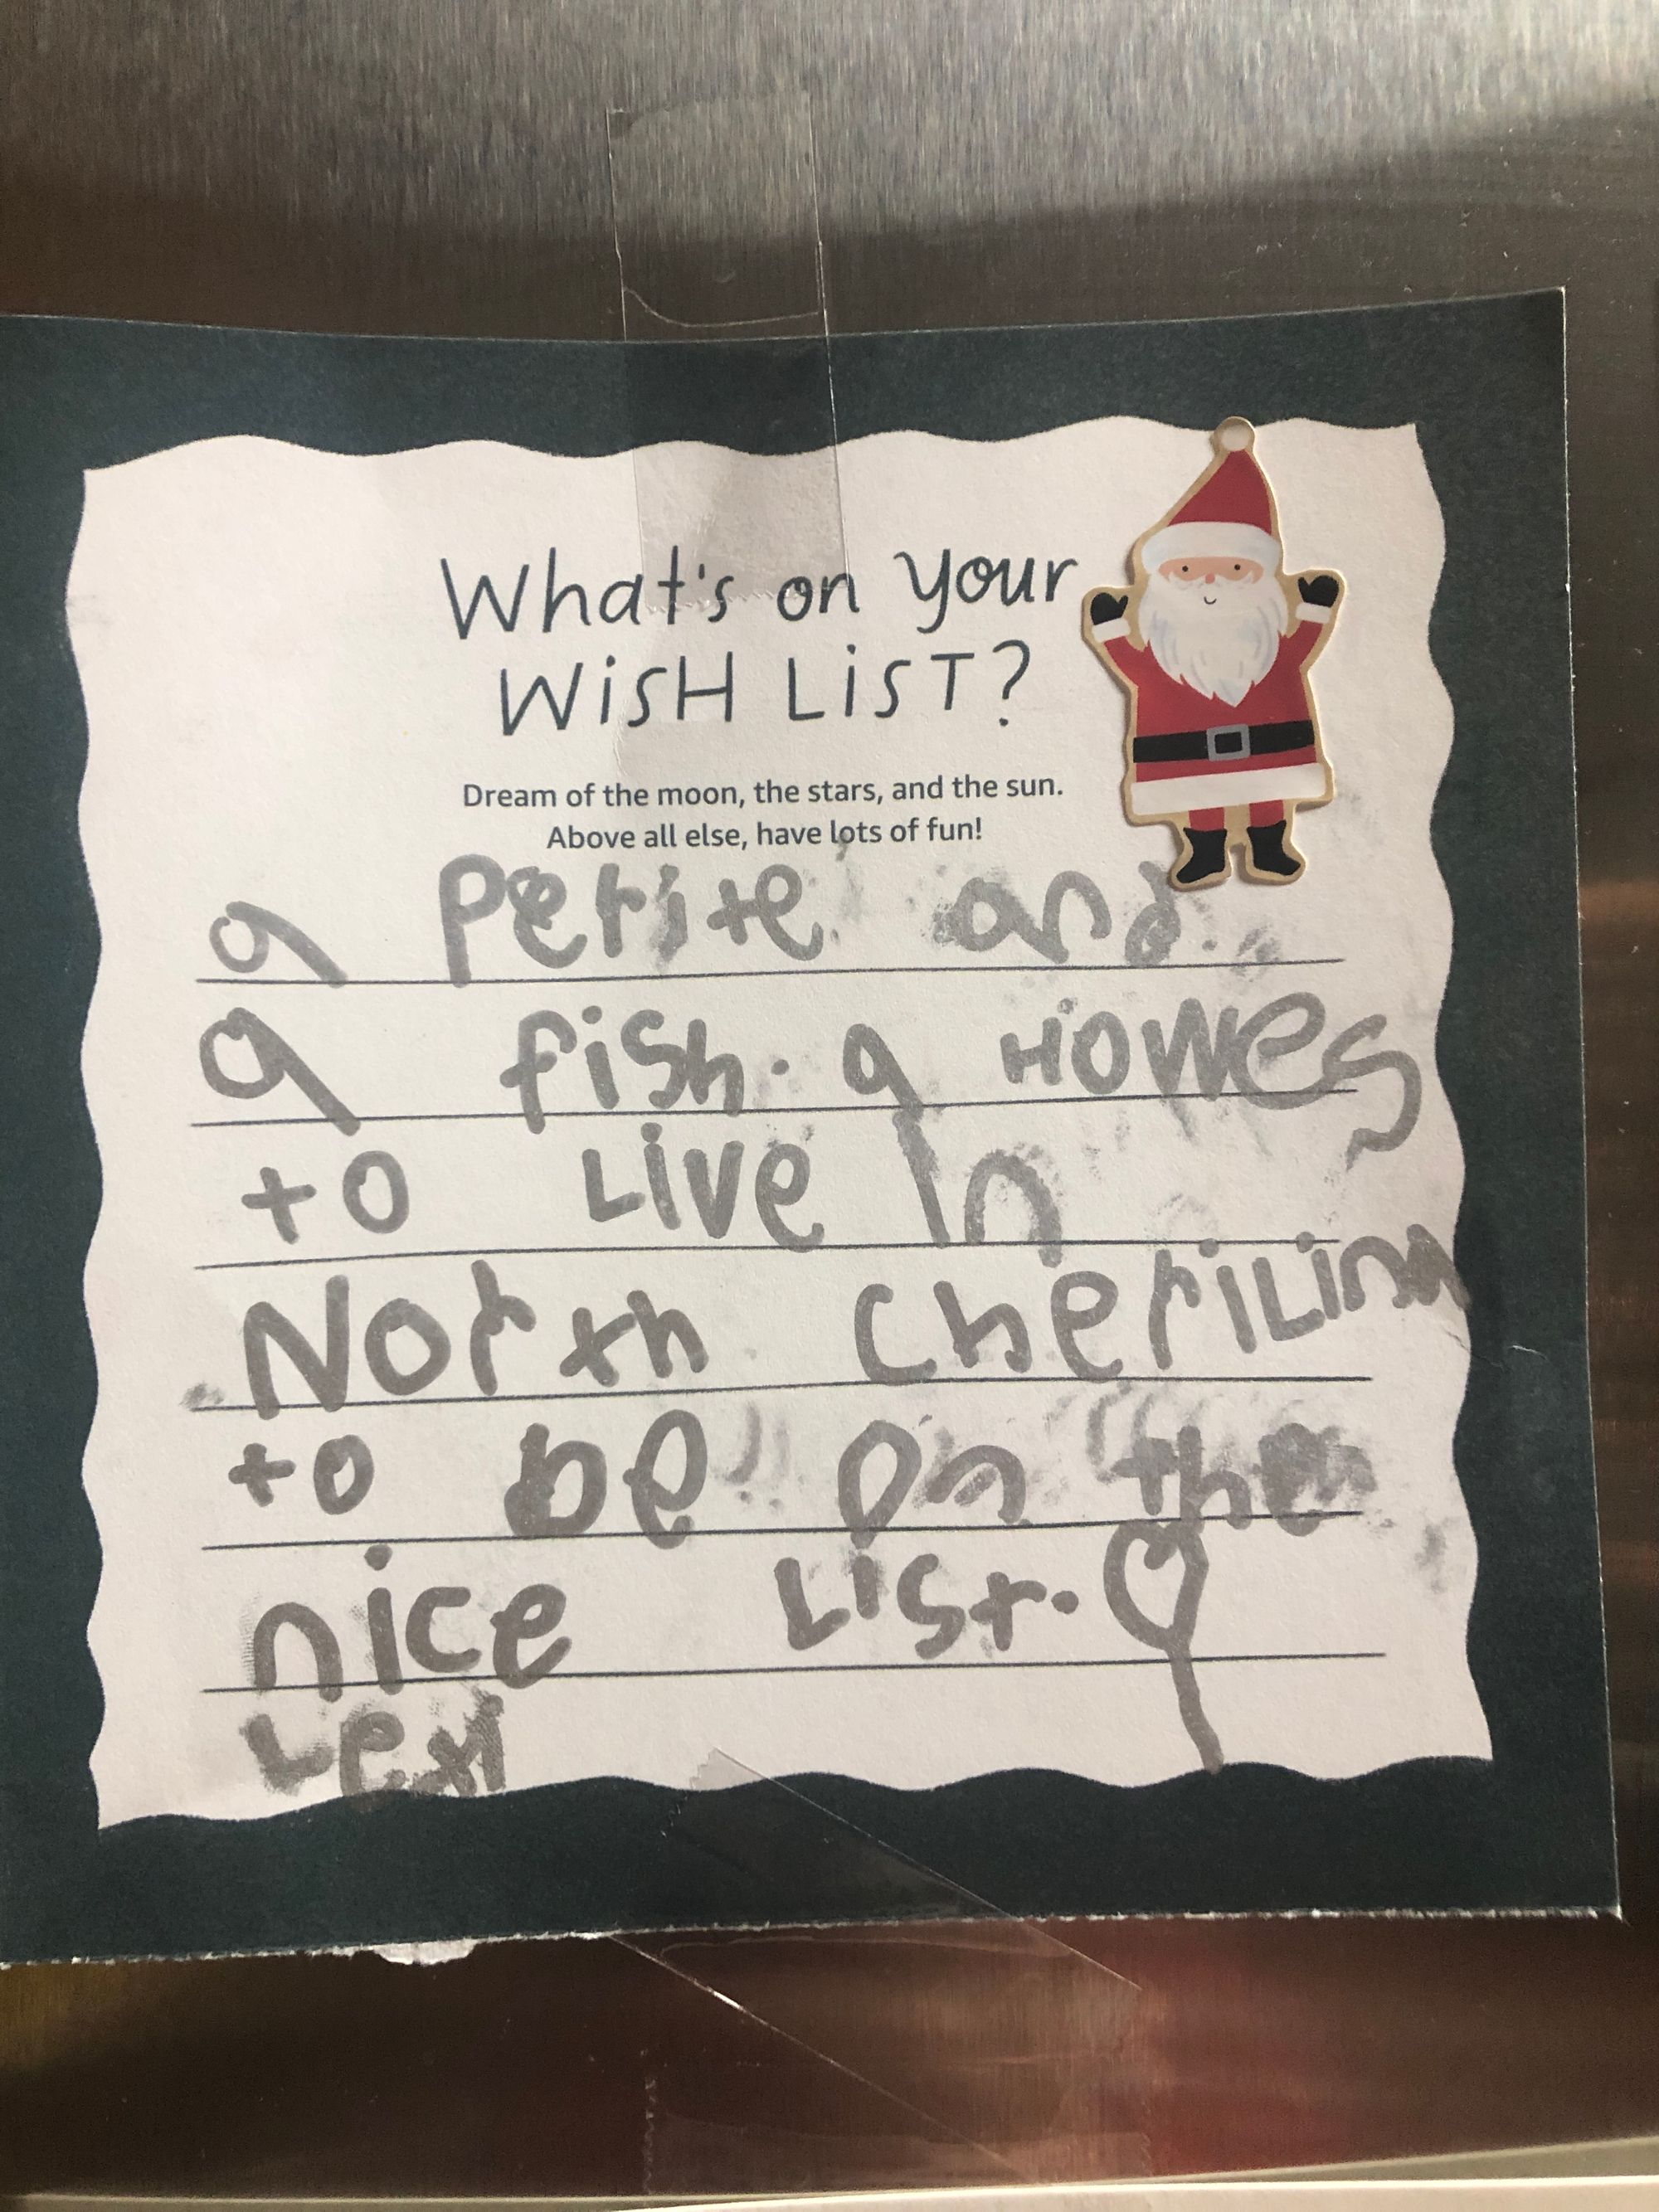 What's on your
WiSH LiST?
Dream of the moon, the stars, and the sun.
Above all else, have lots of fun!
a Perite and
a fish. a Howes
to Live In
North CheriLinn
to be on the
nice List.
Lexi